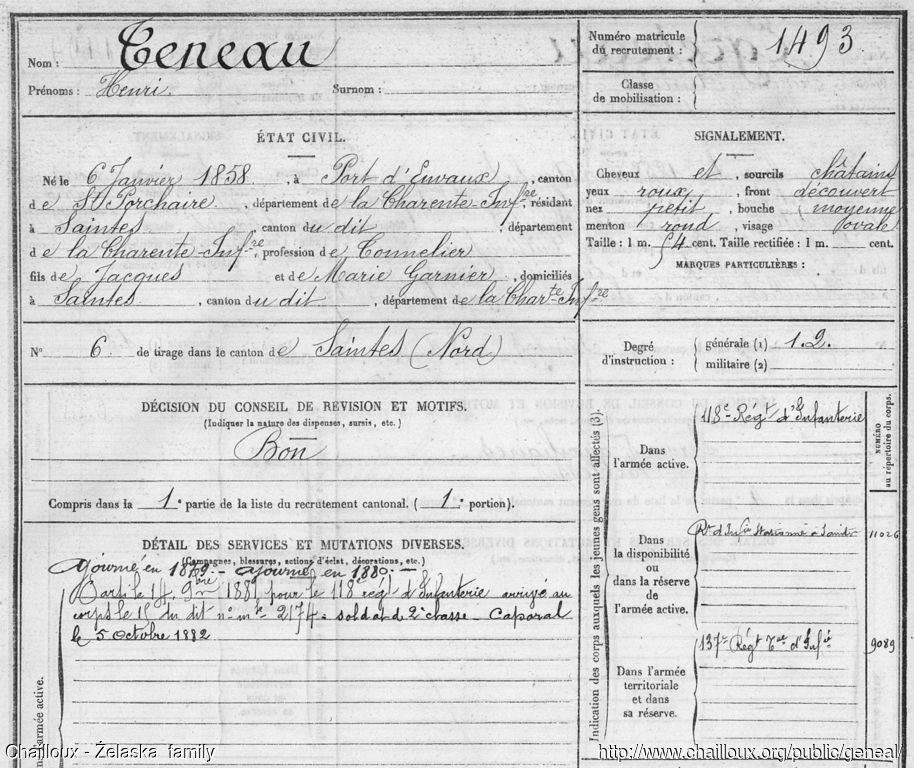 Nom : Teneau
Prénoms : Henri. Surnom :
Numéro matricule du recrutement : 1493
Classe de mobilisation :
ÉTAT CIVIL.
Né le 6 Janvier 1858, à Port d'Envaux, canton
de St Porchaire, département de la Charente-Infre, résidant
à Saintes, canton du dit, département
de la Charente-Infre, profession de Tonnelier
fils de Jacques et de Marie Garnier, domiciliés
à Saintes, canton du dit, département de la Charte Infre
SIGNALEMENT.
Cheveux et, sourcils châtains
yeux roux, front découvert
nez petit, bouche moyenne
menton rond, visage ovale
Taille : 1 m. 54 cent. Taille rectifiée : 1 m. cent.
MARQUES PARTICULIÈRES :
N° 6 de tirage dans le canton de Saintes (Nord)
Degré d'instruction : générale (1) 1.2.
militaire (2)
DÉCISION DU CONSEIL DE REVISION ET MOTIFS.
(Indiquer la nature des dispenses, sursis, etc.)
Bon
Compris dans la 1e partie de la liste du recrutement cantonal. (1e portion).
DÉTAIL DES SERVICES ET MUTATIONS DIVERSES.
(Campagnes, blessures, actions d'éclat, décorations, etc.)
Ajourné en 1879 - ajourné en 1880 -
Parti le 14 9bre 1881 pour le 118e régt d'Infanterie arrivé au
corps le 15 du dit n° mle 2174 = soldat de 2e classe - Caporal
le 5 Octobre 1882
armée active.
Indication des corps auxquels les jeunes gens sont affectés (3).
NUMÉRO au répertoire du corps.
Dans l'armée active.
118e Régt d'Infanterie
Dans la disponibilité ou dans la réserve de l'armée active.
Rt d'Infie à 11026
Dans l'armée territoriale et dans sa réserve.
137e Régt Tal d'Infie 9089
Chailloux - Żelaska family
http://www.chailloux.org/public/geneal/